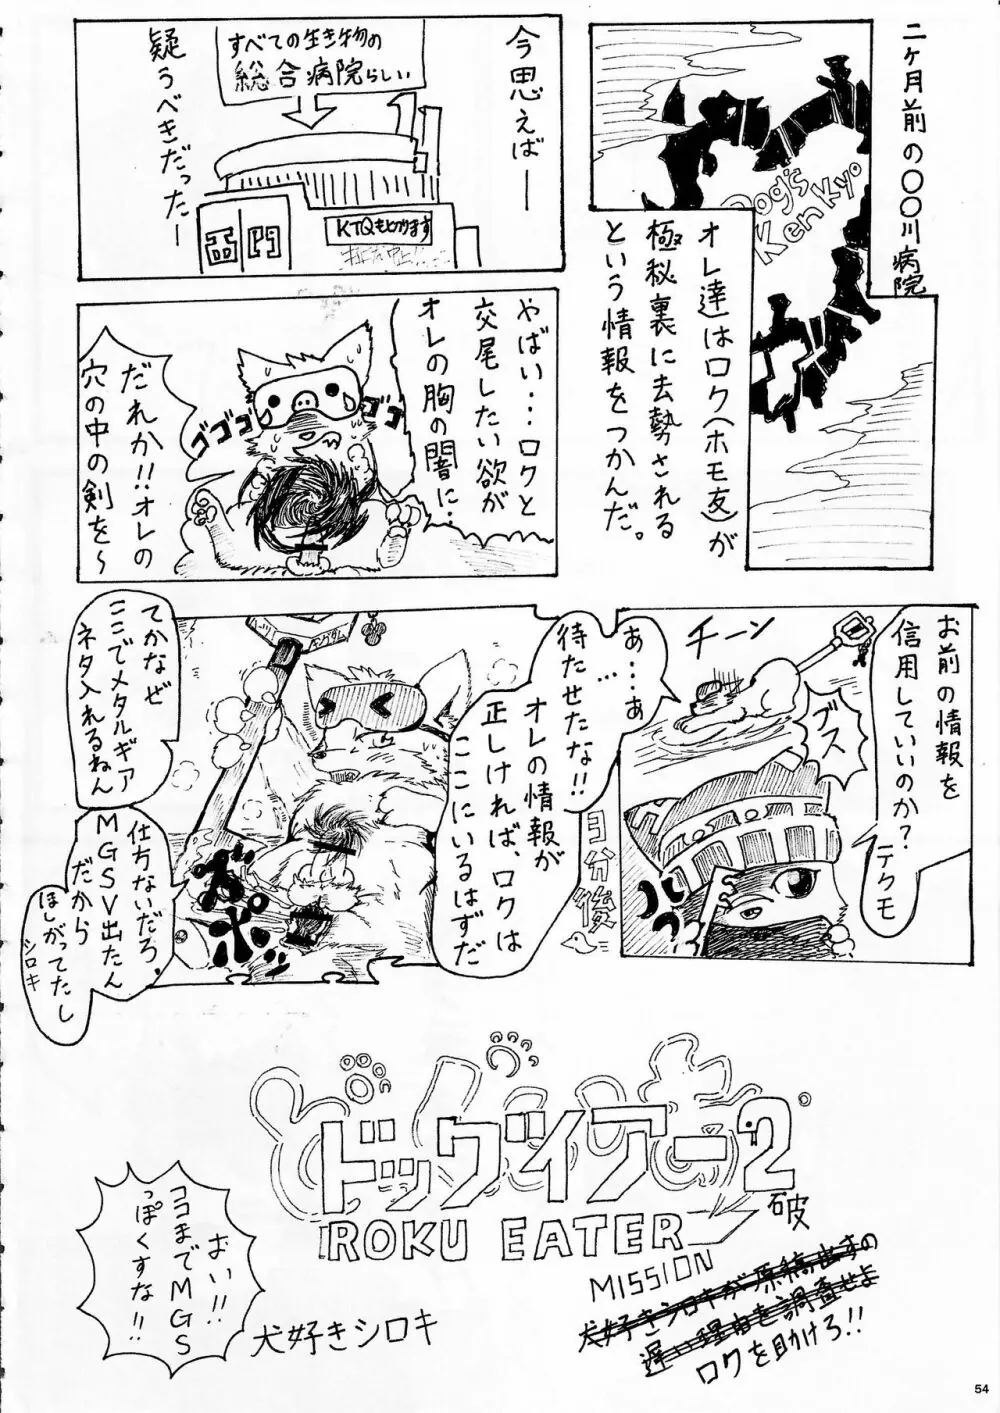 二ヶ月前の〇〇川病院
Dog's
Kenkyo
オレ達はロク(ホモ友)が
極秘裏に去勢される
という情報をつかんだ。
今思えば―
すべての生き物の
総合病院らしい
KTQもとります
疑うべきだった―
やばい…ロクと
交尾したい欲が
オレの胸の闇に…
ゴゴゴ
ゴゴゴ
だれか!!オレの
穴の中の剣を～
お前の情報を
信用していいのか?
テクモ
チーン
ブス
ハァハァ
あ…あ
…
待たせたな!!
オレの情報が
正しければ、ロクは
ここにいるはずだ
3日分後
ズポッ
てかなぜ
ここでメタルギア
ネタ入れるねん
仕方ないだろ、
MGSV出たん
だから
ほしがってたし
シロキ
ドッグイアー2
破
ROKU EATER
MISSION
犬好きシロキが原稿出すの
遅い理由を調査せよ
ロクを助けろ!!
おい!!
ココまでMGS
っぽくすな!!
犬好きシロキ
54